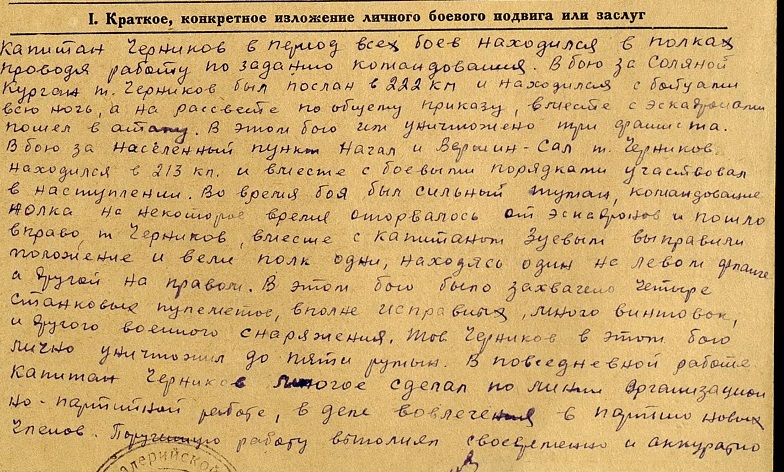 I. Краткое, конкретное изложение личного боевого подвига или заслуг
Капитан Черников в период всех боев находился в полках
проводя работу по заданию командования. В бою за Соляной
Курган т. Черников был послан в 222 кп и находился с бойцами
всю ночь, а на рассвете по общему приказу, вместе с эскадронами
пошел в атаку. В этом бою им уничтожено три фашиста.
В бою за населенный пункт Нагал и Вершин-Сал т. Черников
находился в 213 кп. и вместе с боевыми порядками участвовал
в наступлении. Во время боя был сильный туман, командование
полка на некоторое время оторвалось от эскадронов и пошло
вправо, т. Черников, вместе с капитаном Зуевым выправили
положение и вели полк одни, находясь один на левом фланге
а другой на правом. В этом бою было захвачено четыре
станковых пулеметов, вполне исправных, много винтовок,
и другого военного снаряжения. Тов Черников в этом бою
лично уничтожил до пяти румын. В повседневной работе
капитан Черников многое сделал по линии организацион
но-партийной работе, в деле вовлечения в партию новых
членов. Порученную работу выполнял своевременно и аккуратно